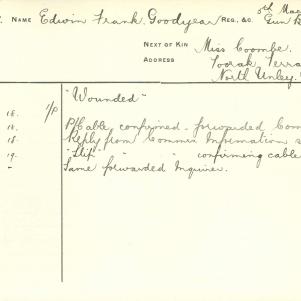 NAME Edwin Frank Goodyear REG., &C. 5th Mac
Gun B
NEXT OF KIN Miss Coombe.
ADDRESS Toorak Terra
North Unley.
I/P "Wounded"
15.
18. P/Cable confirmed - forwarded Com
18. Reply from Commin Information s
19. "Slip" " " confirming cable
" Same forwarded Inquirer.